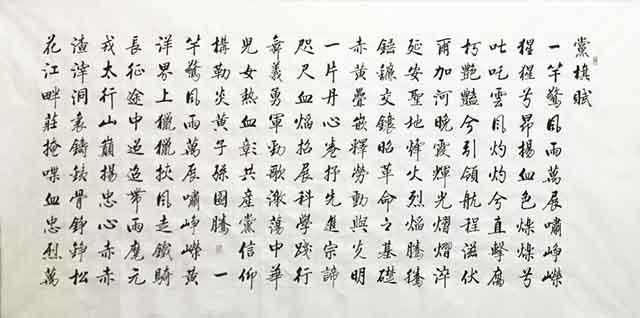 黨旗賦
一竿驚風雨萬展嘯崢嶸
猩猩兮昂揚血色燦燦兮
吐吃雲風灼灼兮直擊腐
朽艷豔兮引領航程滋伏
爾加河晚霞輝光熠熠淬
延安聖地烽火烈焰騰騰
錘鐮交鑲昭革命之基礎
赤黃疊嵌釋勞動與光明
一片丹心卷抒先進宗諦
咫尺血焰招展科學踐行
舞義勇軍動歌激蕩中華
兒女熱血彰共產黨信仰
構勒炎黃子孫圖騰 一
竿驚風雨萬展嘯崢嶸黃
洋界上獵獵挾風走鐵騎
長征途中迢迢帶雨麾元
戎太行山巔揚忠心赤赤
渣滓洞裏鑄骨錚錚松
花江畔莊掩喋血忠烈萬